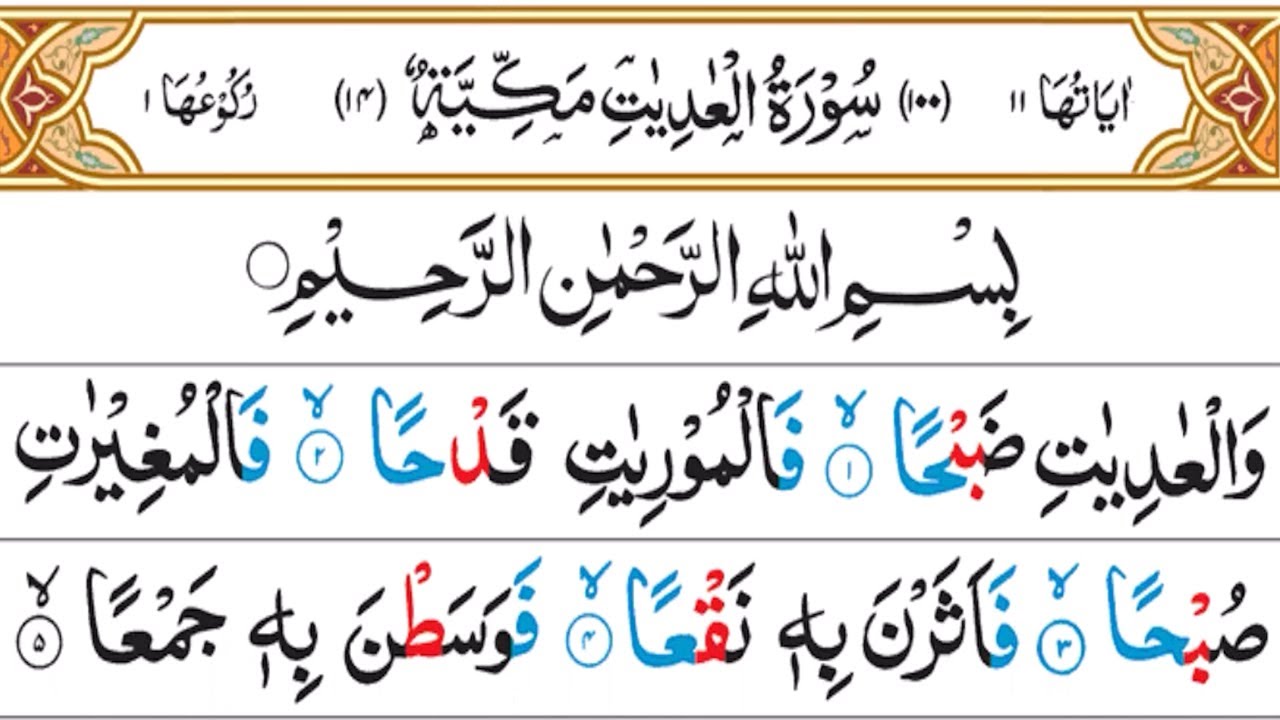 اٰيَاتُهَا ١١ (١٠٠) سُوْرَةُ الْعٰدِيٰتِ مَكِّيَّةٌ (١۴) رُكُوْعُهَا ١
بِسْمِ اللّٰهِ الرَّحْمٰنِ الرَّحِيْمِ
وَالْعٰدِيٰتِ ضَبْحًا ۙ ١ فَالْمُوْرِيٰتِ قَدْحًا ۙ ٢ فَالْمُغِيْرٰتِ
صُبْحًا ۙ ٣ فَاَثَرْنَ بِهٖ نَقْعًا ۙ ۴ فَوَسَطْنَ بِهٖ جَمْعًا ۙ ۵